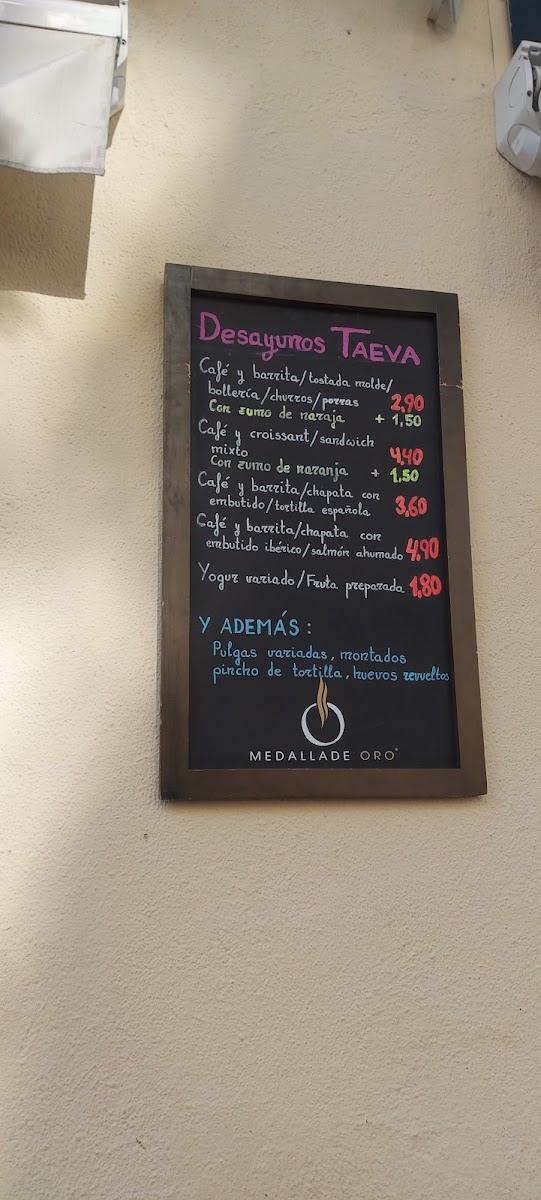 Desayunos TAEVA
Café y barrita/tostada molde/
bollería/churros/porras 2,90
Con zumo de naraja + 1,50
Café y croissant/sandwich
mixto 4,40
Con zumo de naranja + 1,50
Café y barrita/chapata con
embutido/tortilla española 3,60
Café y barrita/chapata con
embutido ibérico/salmón ahumado 4,90
Yogur variado/Fruta preparada 1,80
Y ADEMÁS:
Pulgas variadas, montados
pincho de tortilla, huevos revueltos
MEDALLADE ORO